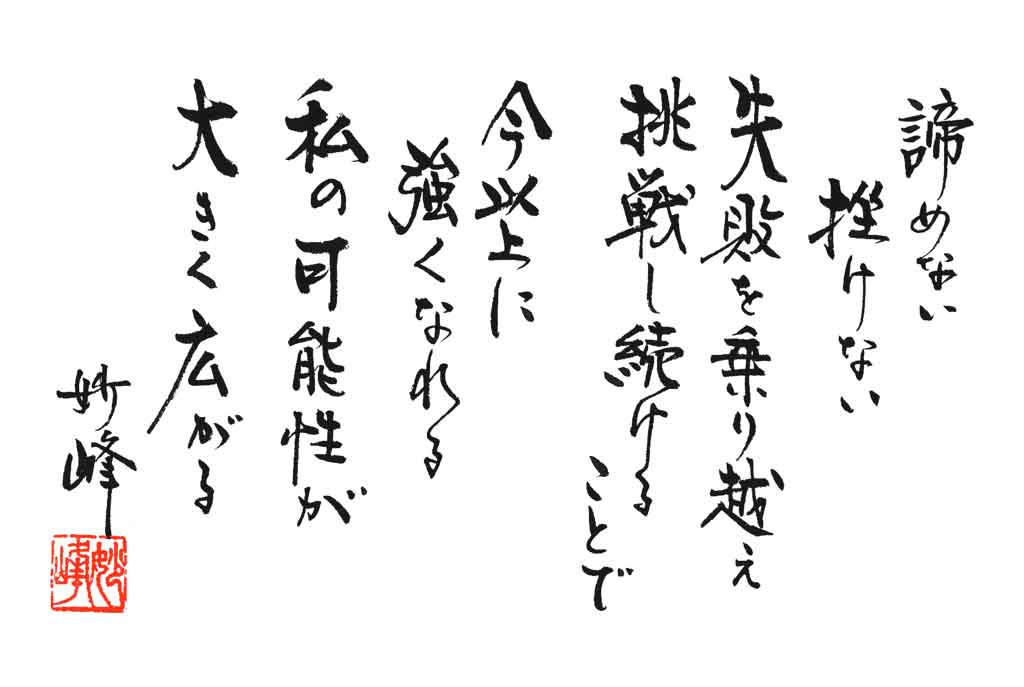 諦めない
挫けない
失敗を乗り越え
挑戦し続ける
ことで
今以上に
強くなれる
私の可能性が
大きく広がる
妙峰
妙峰